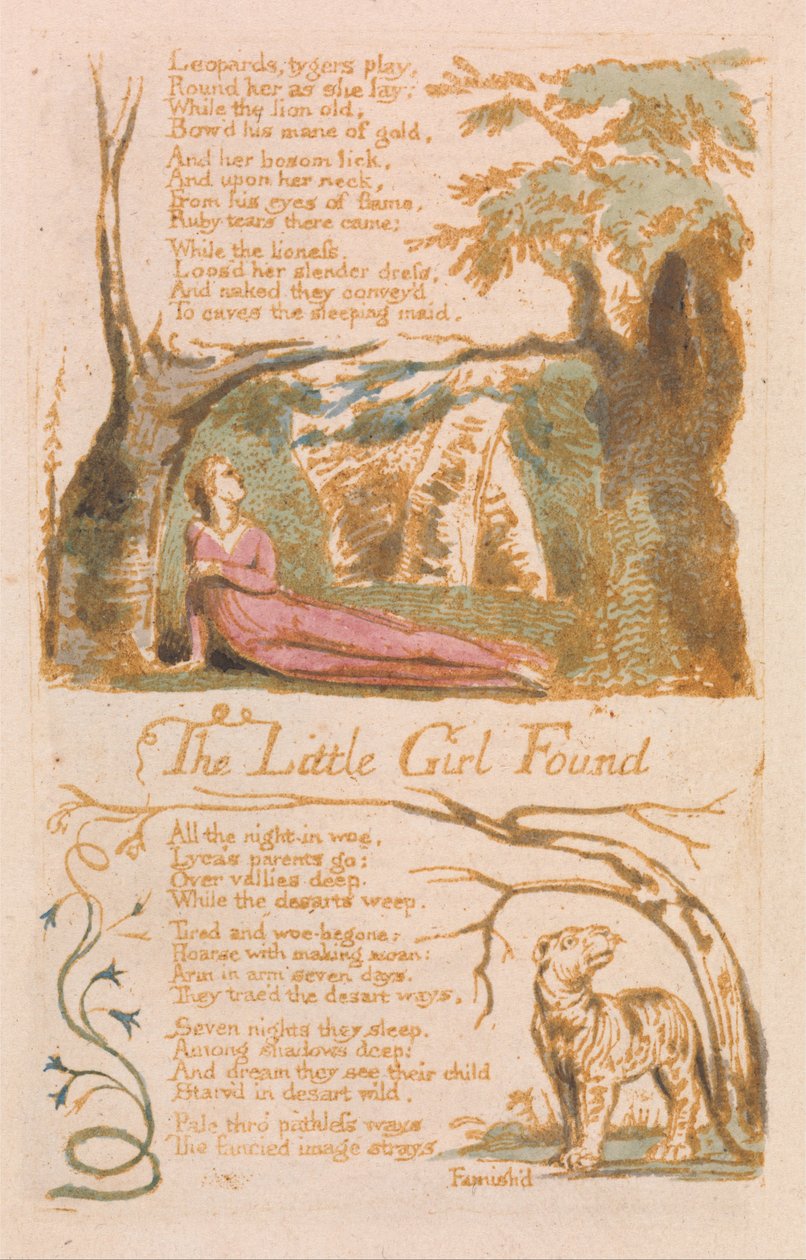 Leopards, tygers play,
Round her as she lay;
While the lion old,
Bow'd his mane of gold,
And her bosom lick,
And upon her neck,
From his eyes of flame,
Ruby tears there came;
While the lioneſs
Loos'd her slender dreſs,
And naked they convey'd
To caves the sleeping maid.
The Little Girl Found
All the night in woe,
Lyca's parents go:
Over vallies deep.
While the desarts weep.
Tired and woe-begone,
Hoarse with making moan:
Arm in arm seven days.
They trac'd the desart ways.
Seven nights they sleep.
Among shadows deep:
And dream they see their child
Starv'd in desart wild.
Pale thro' pathleſs ways
The fancied image strays
Famish'd